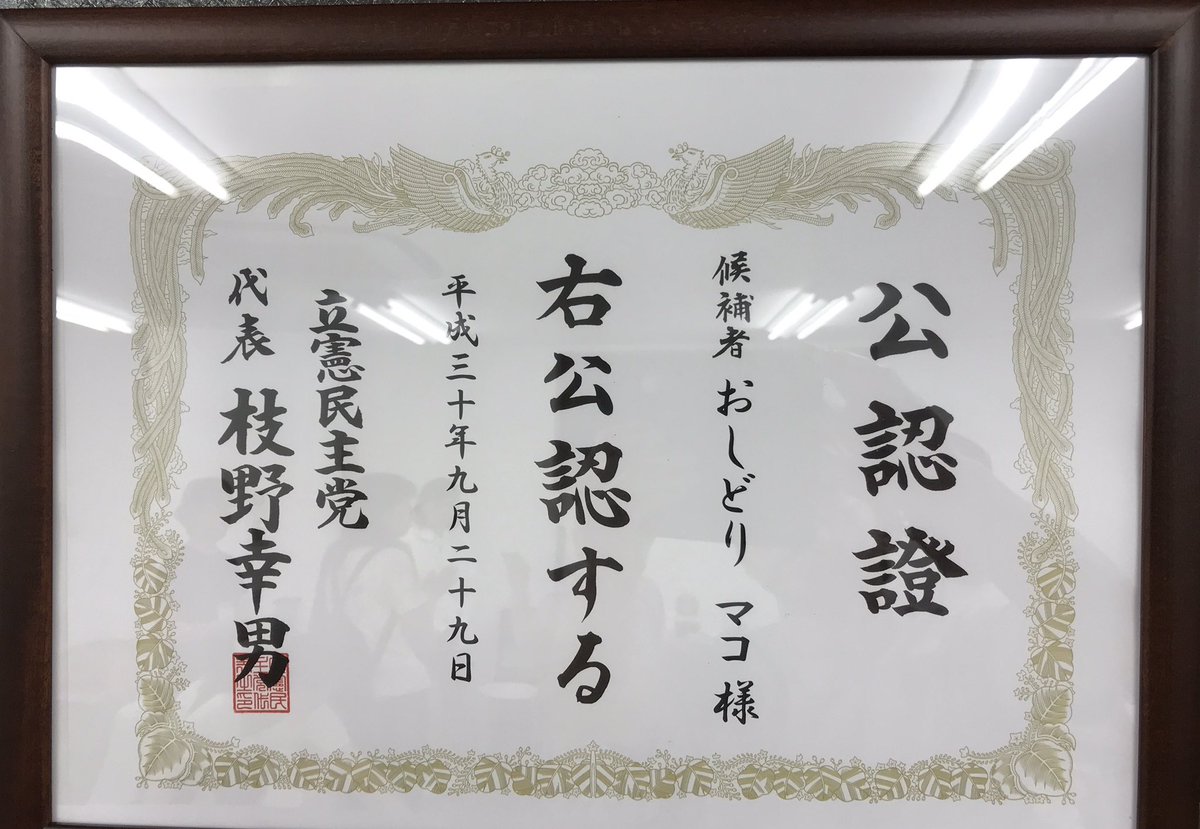 公認證
候補者 おしどり マコ 様
右公認する
平成三十年九月二十九日
立憲民主党
代表 枝野幸男